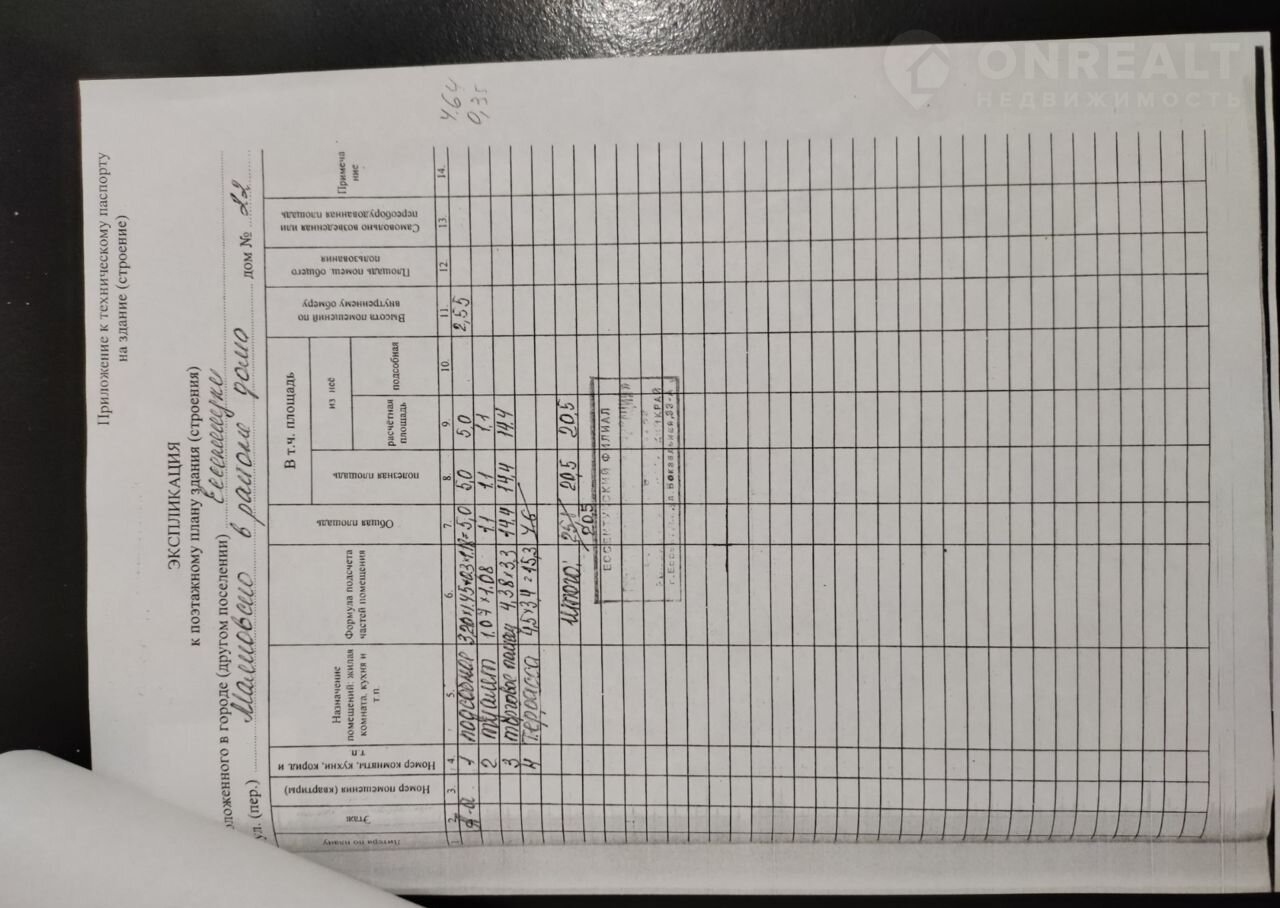 ONREALT
НЕДВИЖИМОСТЬ
Приложение к техническому паспорту
на здание (строение)
ЭКСПЛИКАЦИЯ
к поэтажному плану здания (строения)
оложенного в городе (другом поселении)
ул. (пер.) в районе дома дом № 22
Литера по плану
Этаж
Номер помещения (квартиры)
Номер комнаты, кухни, корид. и т.п
Назначение помещений: жилая комната, кухня и т.п.
Формула подсчета частей помещения
Общая площадь
В т.ч. площадь
полезная площадь
из неё
расчётная площадь
подсобная
Высота помещений по внутреннему обмеру
Площадь помещ. общего пользования
Самовольно возведенная или переоборудованная площадь
Примеча ние
1 2. 3. 4. 5. 6. 7. 8. 9. 10. 11. 12 13. 14.
4.64
0,35
1 5,0 5,0 5,0 2,55
2 туалет 1.07×1.08 1.1 1.1 1,1
3 торговое 4,38×3,3 14.4 14,4 14.4
4 Терраса 4,5×3,4=15,3
Итого: 20,5 20,5
20,5
ЕССЕНТУКСКИЙ ФИЛИАЛ